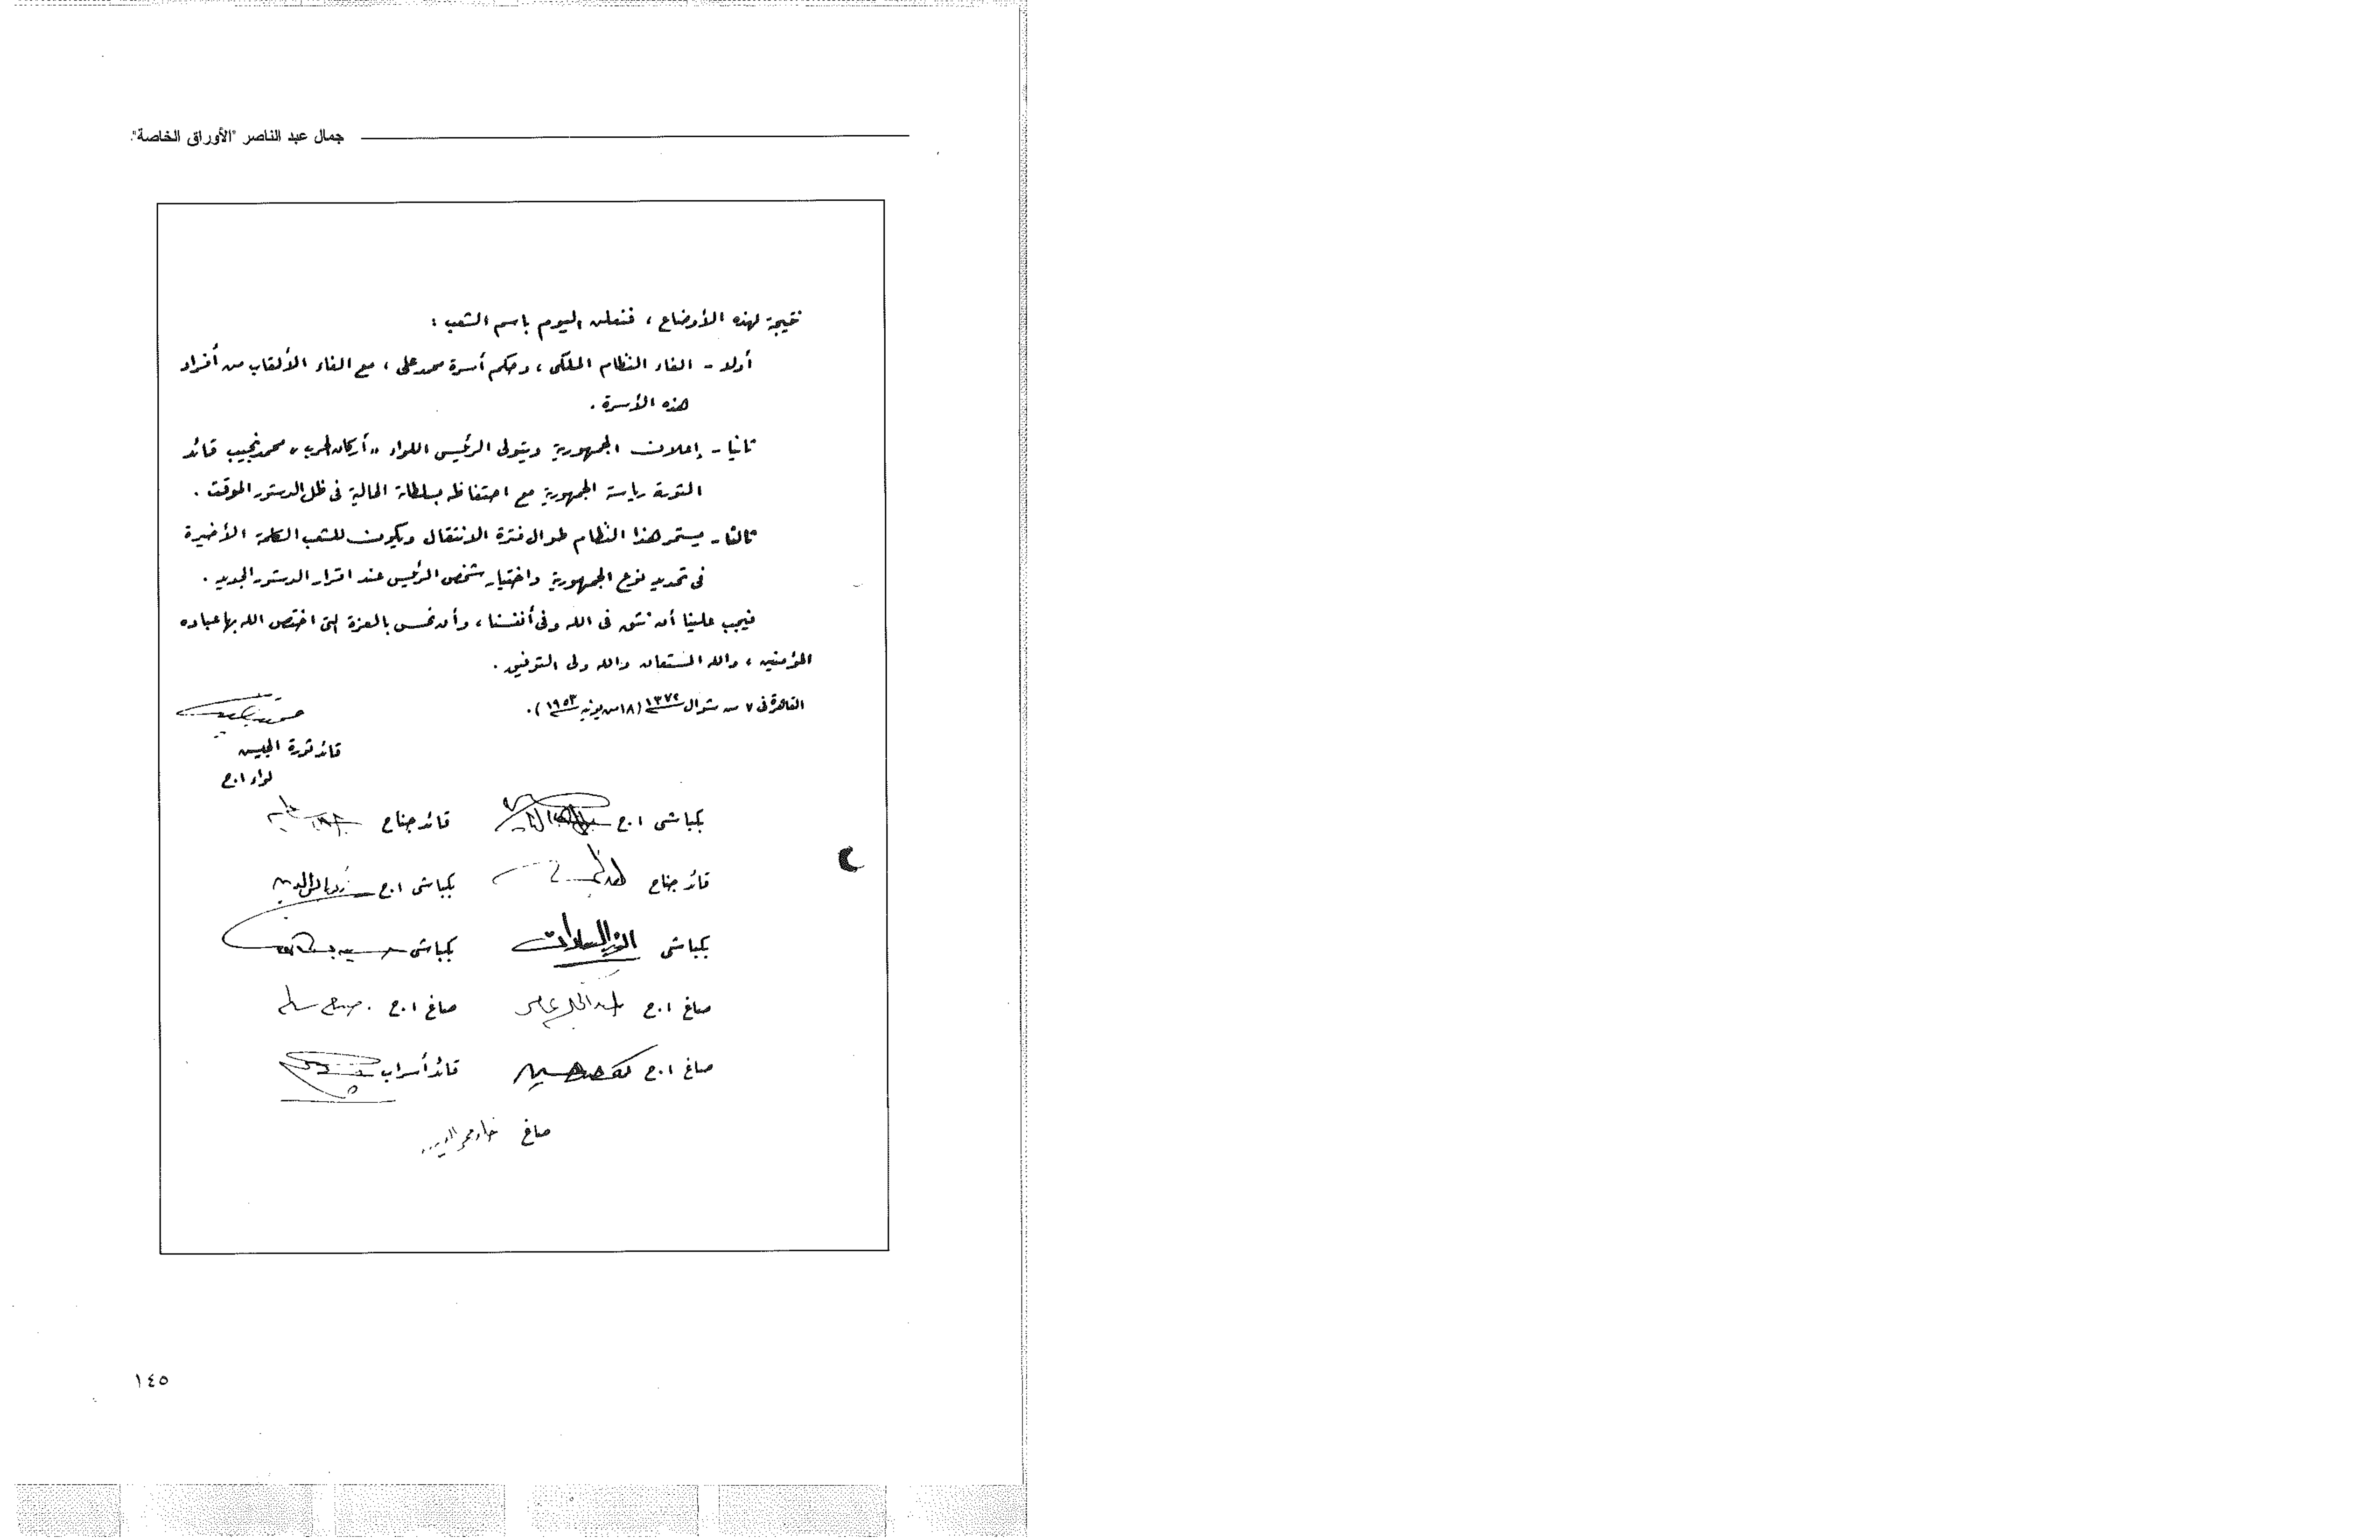 جمال عبد الناصر "الأوراق الخاصة".
نتيجة لهذه الأوضاع ، فنعلن اليوم باسم الشعب :
أولا - الغاء النظام الملكى ، وحكم أسرة محمد على ، مع الغاء الألقاب من أفراد
هذه الأسرة .
ثانيا - إعلان الجمهورية ويتولى الرئيس اللواء "أركان الحرب" محمد نجيب قائد
الثورة رياسة الجمهورية مع احتفاظه بسلطاته الحالية فى ظل الدستور المؤقت .
ثالثا - يستمر هذا النظام طوال فترة الانتقال ويكون للشعب الكلمة الأخيرة
فى تحديد نوع الجمهورية واختيار شخص الرئيس عند اقرار الدستور الجديد .
فيجب علينا أن نثق فى الله وفى أنفسنا ، وأن نحس بالعزة التى اختص الله بها عباده
المؤمنين ، والله المستعان والله ولى التوفيق .
القاهرة فى ٧ من شوال ١٣٧٢ (١٨ من يونيه ١٩٥٣) .
قائد ثورة الجيش
لواء ا.ح
بكباشى ا.ح قائد جناح
قائد جناح بكباشى ا.ح زكريا محى الدين
بكباشى أنور السادات بكباشى حسين
صاغ ا.ح عبد الحكيم عامر صاغ ا.ح صلاح سالم
صاغ ا.ح حسين قائد أسراب
صاغ خالد محى الدين
١٤٥